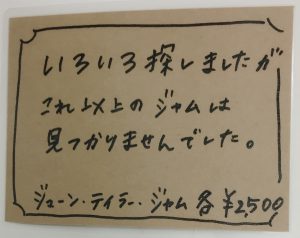 いろいろ探しましたが
これ以上のジャムは
見つかりませんでした。
ジューン・テイラー・ジャム 各¥2,500